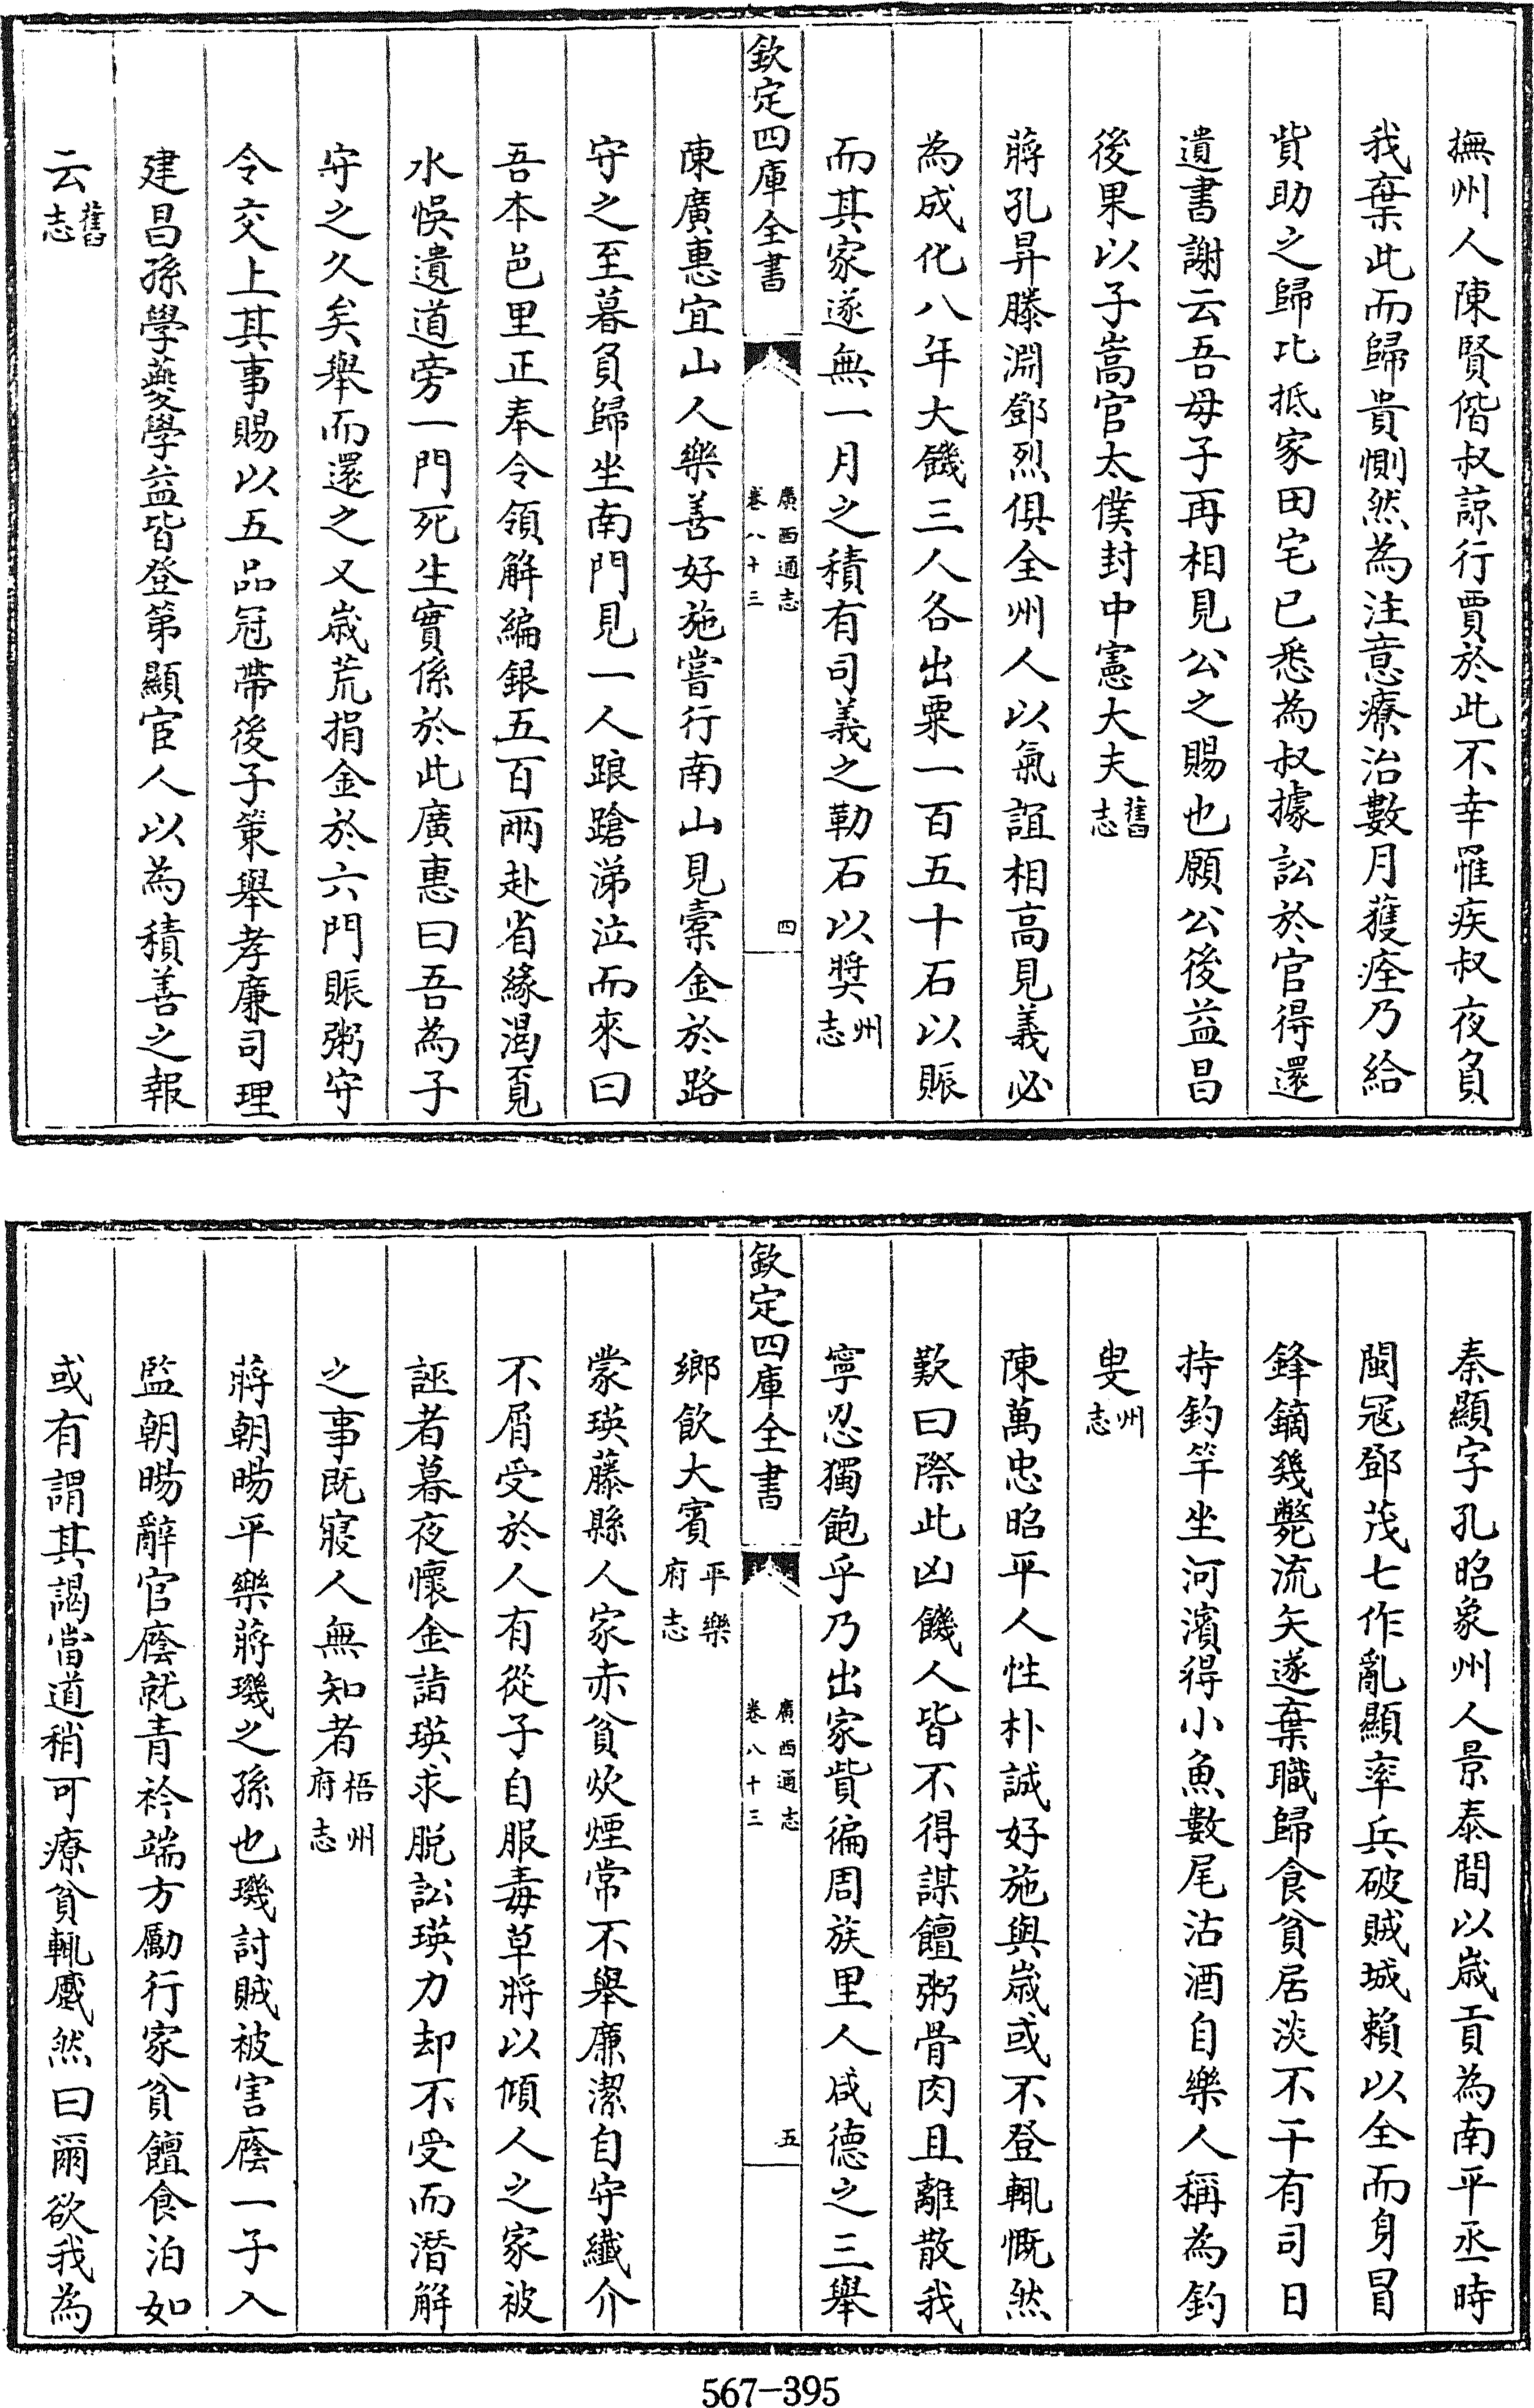 撫州人陳賢偕叔諒行賈於此不幸罹疾叔夜負
我棄此而歸貴惻然為注意療治數月獲痊乃給
貲助之歸比抵家田宅已悉為叔據訟於官得還
遺書謝云吾母子再相見公之賜也願公後益昌
後果以子嵩官太僕封中憲大夫舊志
蔣孔昇滕淵鄧烈俱全州人以氣誼相高見義必
為成化八年大饑三人各出粟一百五十石以賑
而其家遂無一月之積有司義之勒石以奬州志
欽定四庫全書
廣西通志
卷八十三
四
陳廣惠宜山人樂善好施嘗行南山見橐金於路
守之至暮負歸坐南門見一人踉蹌涕泣而來曰
吾本邑里正奉令領解編銀五百兩赴省緣渴覓
水悞遺道旁一門死生實係於此廣惠曰吾為子
守之久矣舉而還之又歲荒捐金於六門賑粥守
令交上其事賜以五品冠帶後子䇿舉孝廉司理
建昌孫學夔學益皆登第顯宦人以為積善之報
云舊志
秦顯字孔昭象州人景泰間以歲貢為南平丞時
閩冦鄧茂七作亂顯率兵破賊城賴以全而身冒
鋒鏑幾斃流矢遂棄職歸食貧居淡不干有司日
持釣竿坐河濱得小魚數尾沽酒自樂人稱為釣
叟州志
陳萬忠昭平人性朴誠好施與歲或不登輒慨然
歎曰際此凶饑人皆不得謀饘粥骨肉且離散我
寧忍獨飽乎乃出家貲徧周族里人咸德之三舉
欽定四庫全書
廣西通志
卷八十三
五
鄉飲大賓平樂府志
蒙瑛藤縣人家赤貧炊煙常不舉廉潔自守纖介
不屑受於人有從子自服毒草將以傾人之家被
誣者暮夜懷金詣瑛求脱訟瑛力却不受而潛解
之事既寢人無知者梧州府志
蔣朝暘平樂蔣璣之孫也璣討賊被害廕一子入
監朝暘辭官廕就青衿端方勵行家貧饘食泊如
或有謂其謁當道稍可療貧輒蹙然曰爾欲我為
567-395